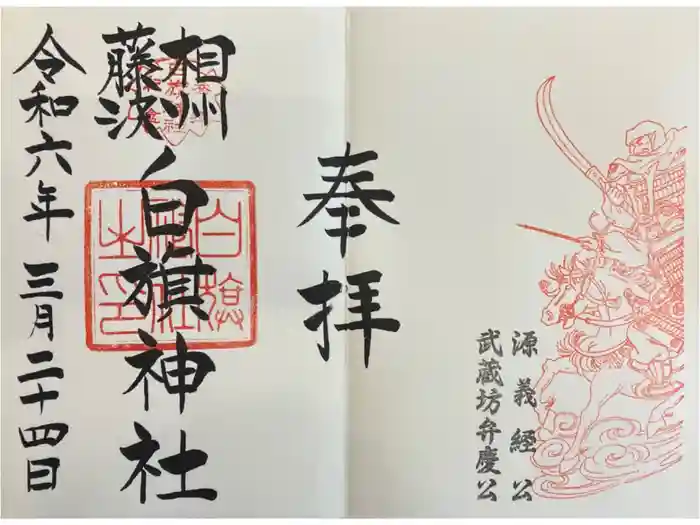 源義経公
武蔵坊弁慶公
奉拝
相州
藤沢
白旗神社
白旗
神社
之印
令和六年三月二十四日